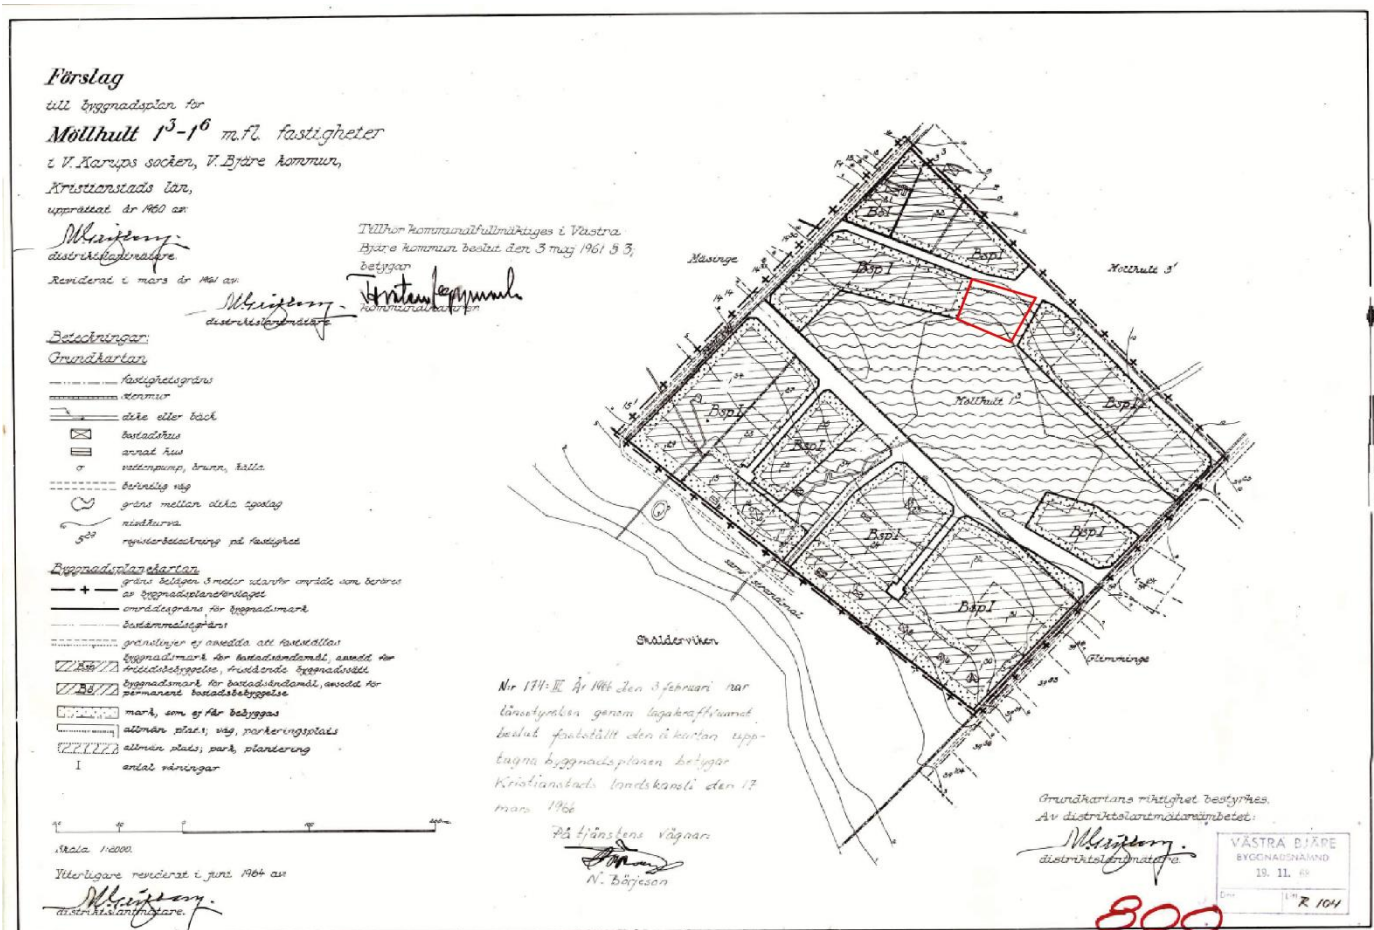 Förslag
till byggnadsplan för
Möllhult 1³-1⁶ m.fl. fastigheter
i V. Karups socken, V. Bjäre kommun,
Kristianstads län,
upprättat år 1960 av:
distriktslantmätare.
Reviderat i mars år 1961 av:
distriktslantmätare
Tillhör kommunalfullmäktiges i Västra
Bjäre kommun beslut den 3 maj 1961 § 3,
betygar
Beteckningar:
Grundkartan
fastighetsgräns
stenmur
dike eller bäck
bostadshus
annat hus
vattenpump, brunn, källa
befintlig väg
gräns mellan olika ägoslag
nivåkurva
registerbeteckning på fastighet
Byggnadsplanekartan
gräns belägen 3 meter utanför område som beröres
av byggnadsplaneförslaget
områdesgräns för byggnadsmark
bestämmelsegräns
gränslinjer ej avsedda att fastställas
Bsp
byggnadsmark för bostadsändamål, avsedd för
fritidsbebyggelse, fristående byggnadssätt
Bö
byggnadsmark för bostadsändamål, avsedd för
permanent bostadsbebyggelse
mark, som ej får bebyggas
allmän plats; väg, parkeringsplats
allmän plats; park, plantering
I
antal våningar
Skala 1:2000.
Ytterligare reviderat i juni 1964 av
distriktslantmätare.
Mäsinge
Möllhult 3¹
BöI
BspI
BspI
BspI
BspI
BspI
Möllhult 1³
BspI
BspI
BspI
Skälderviken
Glimminge
Nr 174-III År 1966 den 3 februari har
länsstyrelsen genom lagakraftvunnet
beslut fastställt den å kartan upp-
tagna byggnadsplanen betygar
Kristianstads landskansli den 17
mars 1966
På tjänstens vägnar:
N. Börjeson
Grundkartans riktighet bestyrkes.
Av distriktslantmätareämbetet:
distriktslantmätare
VÄSTRA BJÄRE
BYGGNADSNÄMND
R 104
800